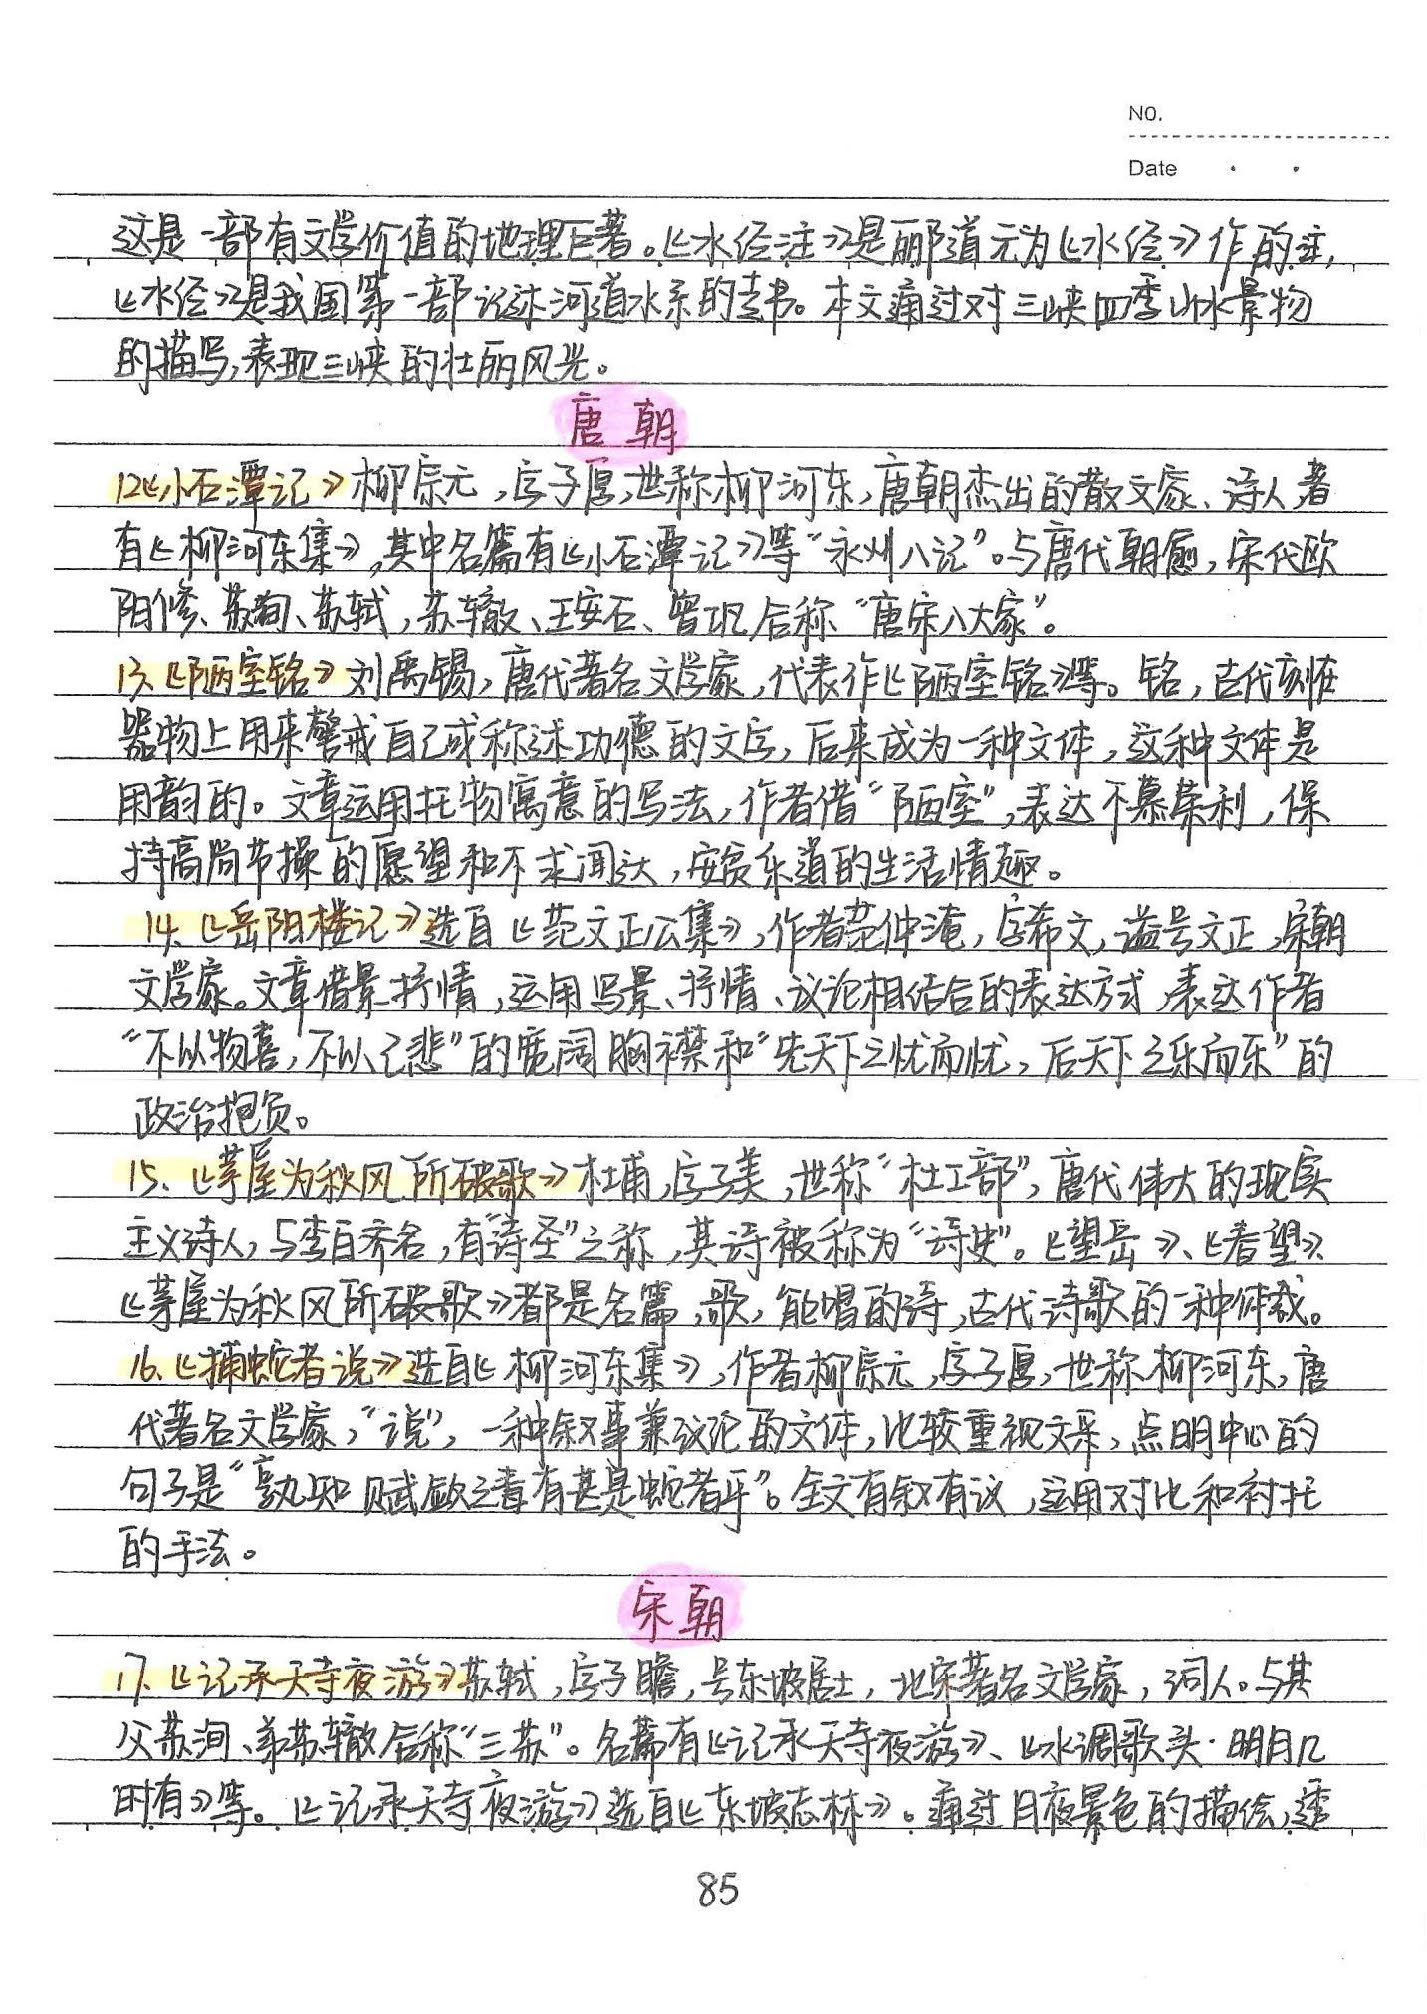 NO.
Date
这是一部有文学价值的地理巨著。《水经注》是郦道元为《水经》作的注,
《水经》是我国第一部记述河道水系的专书。本文通过对三峡四季山水景物
的描写,表现三峡的壮丽风光。
唐朝
12《小石潭记》柳宗元,字子厚,世称柳河东,唐朝杰出的散文家、诗人著
有《柳河东集》,其中名篇有《小石潭记》等“永州八记”。与唐代朝愈,宋代欧
阳修、苏洵、苏轼,苏辙、王安石、曾巩合称“唐宋八大家”。
13、《陋室铭》刘禹锡,唐代著名文学家,代表作《陋室铭》等。铭,古代刻在
器物上用来警戒自己或称述功德的文字,后来成为一种文体,这种文体是
用韵的。文章运用托物寓意的写法,作者借“陋室”,表达不慕荣利,保
持高尚节操的愿望和不求闻达,安贫乐道的生活情趣。
14、《岳阳楼记》选自《范文正公集》,作者范仲淹,字希文,谥号文正,宋朝
文学家。文章借景抒情,运用写景、抒情、议论相结合的表达方式,表达作者
“不以物喜,不以己悲”的宽阔胸襟和“先天下之忧而忧,后天下之乐而乐”的
政治抱负。
15、《茅屋为秋风所破歌》杜甫,字子美,世称“杜工部”,唐代伟大的现实
主义诗人,与李白齐名,有“诗圣”之称,其诗被称为“诗史”。《望岳》、《春望》、
《茅屋为秋风所破歌》都是名篇,歌,能唱的诗,古代诗歌的一种体裁。
16、《捕蛇者说》选自《柳河东集》,作者柳宗元,字子厚,世称柳河东,唐
代著名文学家,“说”,一种叙事兼议论的文体,比较重视文采,点明中心的
句子是“孰知赋敛之毒有甚是蛇者乎”。全文有叙有议,运用对比和衬托
的手法。
宋朝
17、《记承天寺夜游》苏轼,字子瞻,号东坡居士,北宋著名文学家,词人。与其
父苏洵、弟苏辙合称“三苏”。名篇有《记承天寺夜游》、《水调歌头·明月几
时有》等。《记承天寺夜游》选自《东坡志林》。通过月夜景色的描绘,透
85